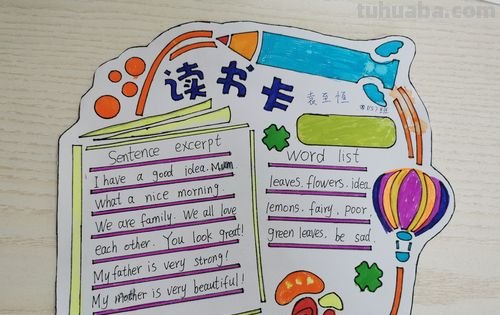 tuhuaba.com
读书卡
袁至恒
Sentence excerpt
I have a good idea. Mum.
What a nice morning.
We are family. We all love
each other. You look great!
My father is very strong!
My mother is very beautiful!
Word list
leaves. flowers. idea
lemons. fairy. poor.
green leaves. be sad.